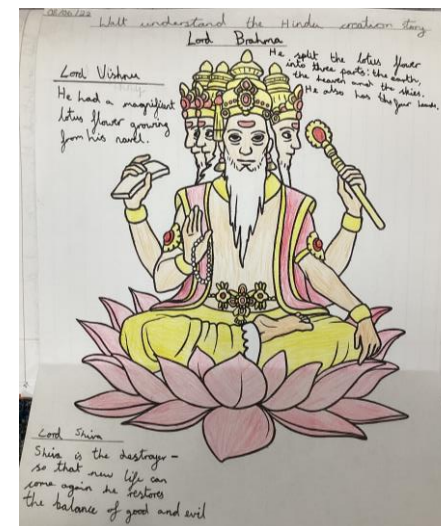 Walt understand the Hindu creation story
Lord Brahma
He split the lotus flower
into three parts: the earth,
the heaven and the skies.
He also has the four heads.
Lord Vishnu
He had a magnificent
lotus flower growing
from his navel.
Lord Shiva
Shiva is the destroyer -
so that new life can
come again he restores
the balance of good and evil